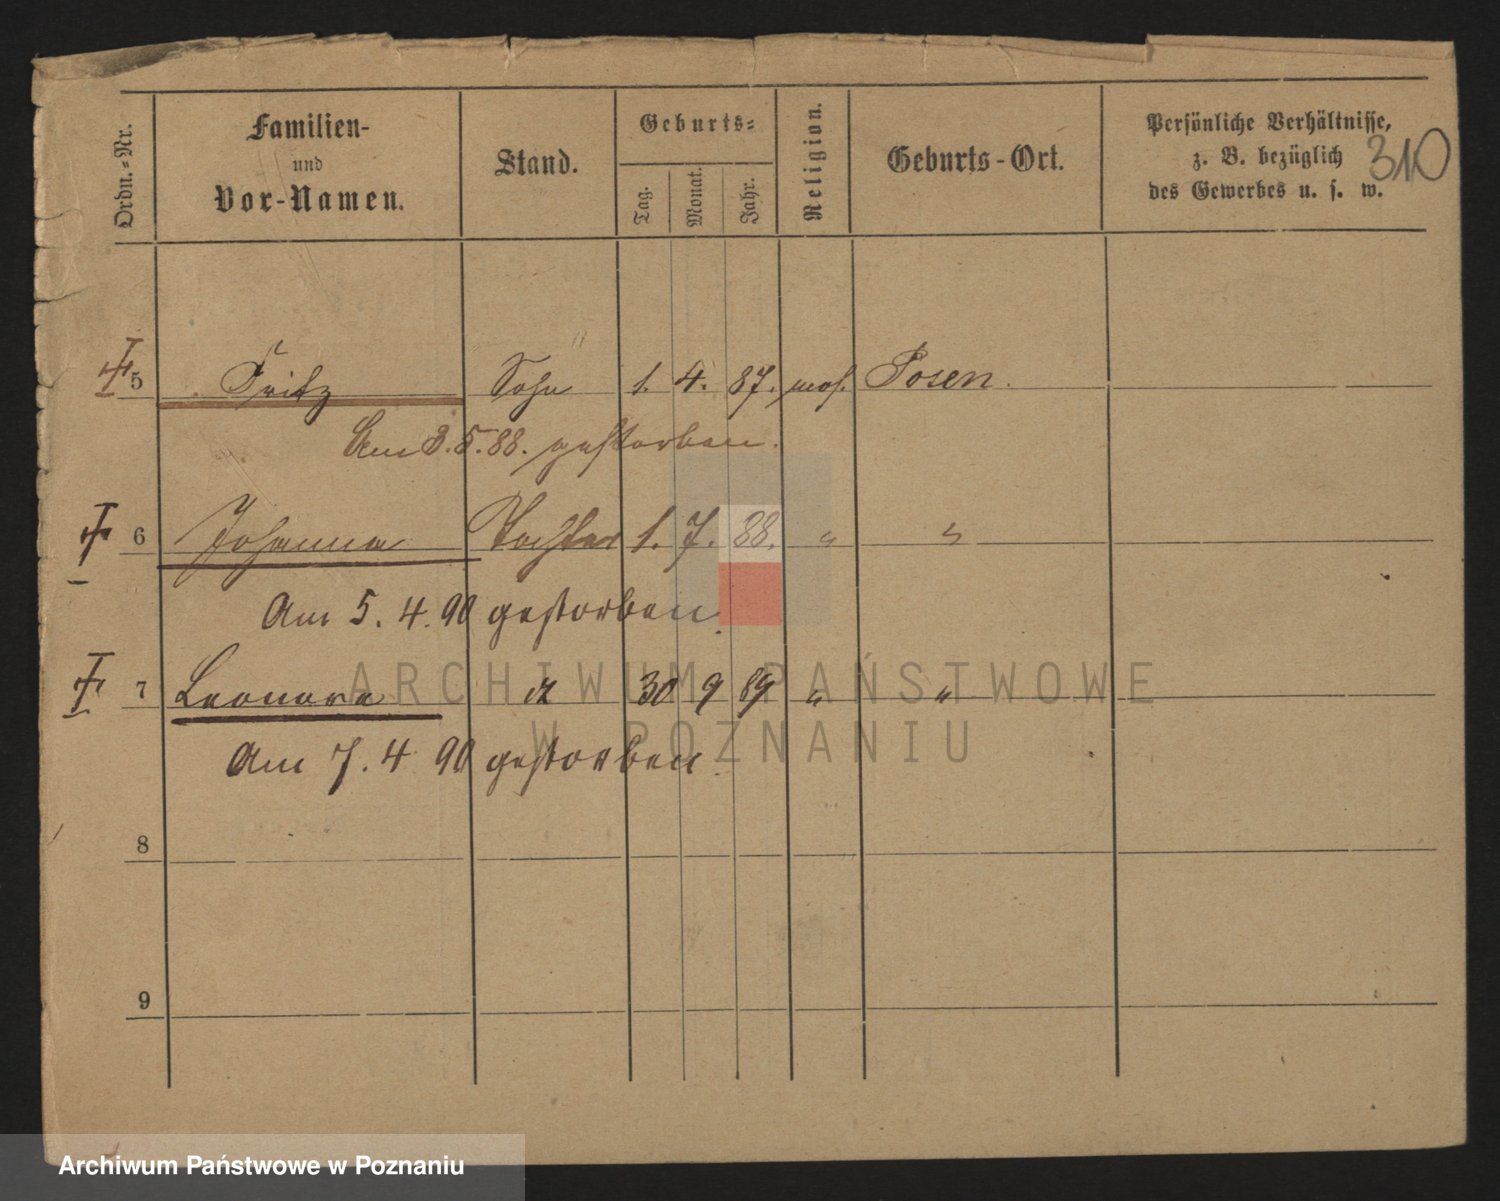 Ordn.-Nr. Familien- und Vor-Namen. Stand. Geburts- Tag. Monat. Jahr. Religion. Geburts-Ort. Persönliche Verhältnisse, z. B. bezüglich des Gewerbes u. s. w.
310
5 Fritz Sohn 1. 4. 87. mos. Posen.
Am 3.5.88. gestorben.
6 Johanna Tochter 1. 7. 88. " "
Am 5. 4. 90 gestorben.
7 Leonore 30 9 89 " "
Am 7. 4 90 gestorben.
8
9
ARCHIWUM PAŃSTWOWE
W POZNANIU
Archiwum Państwowe w Poznaniu